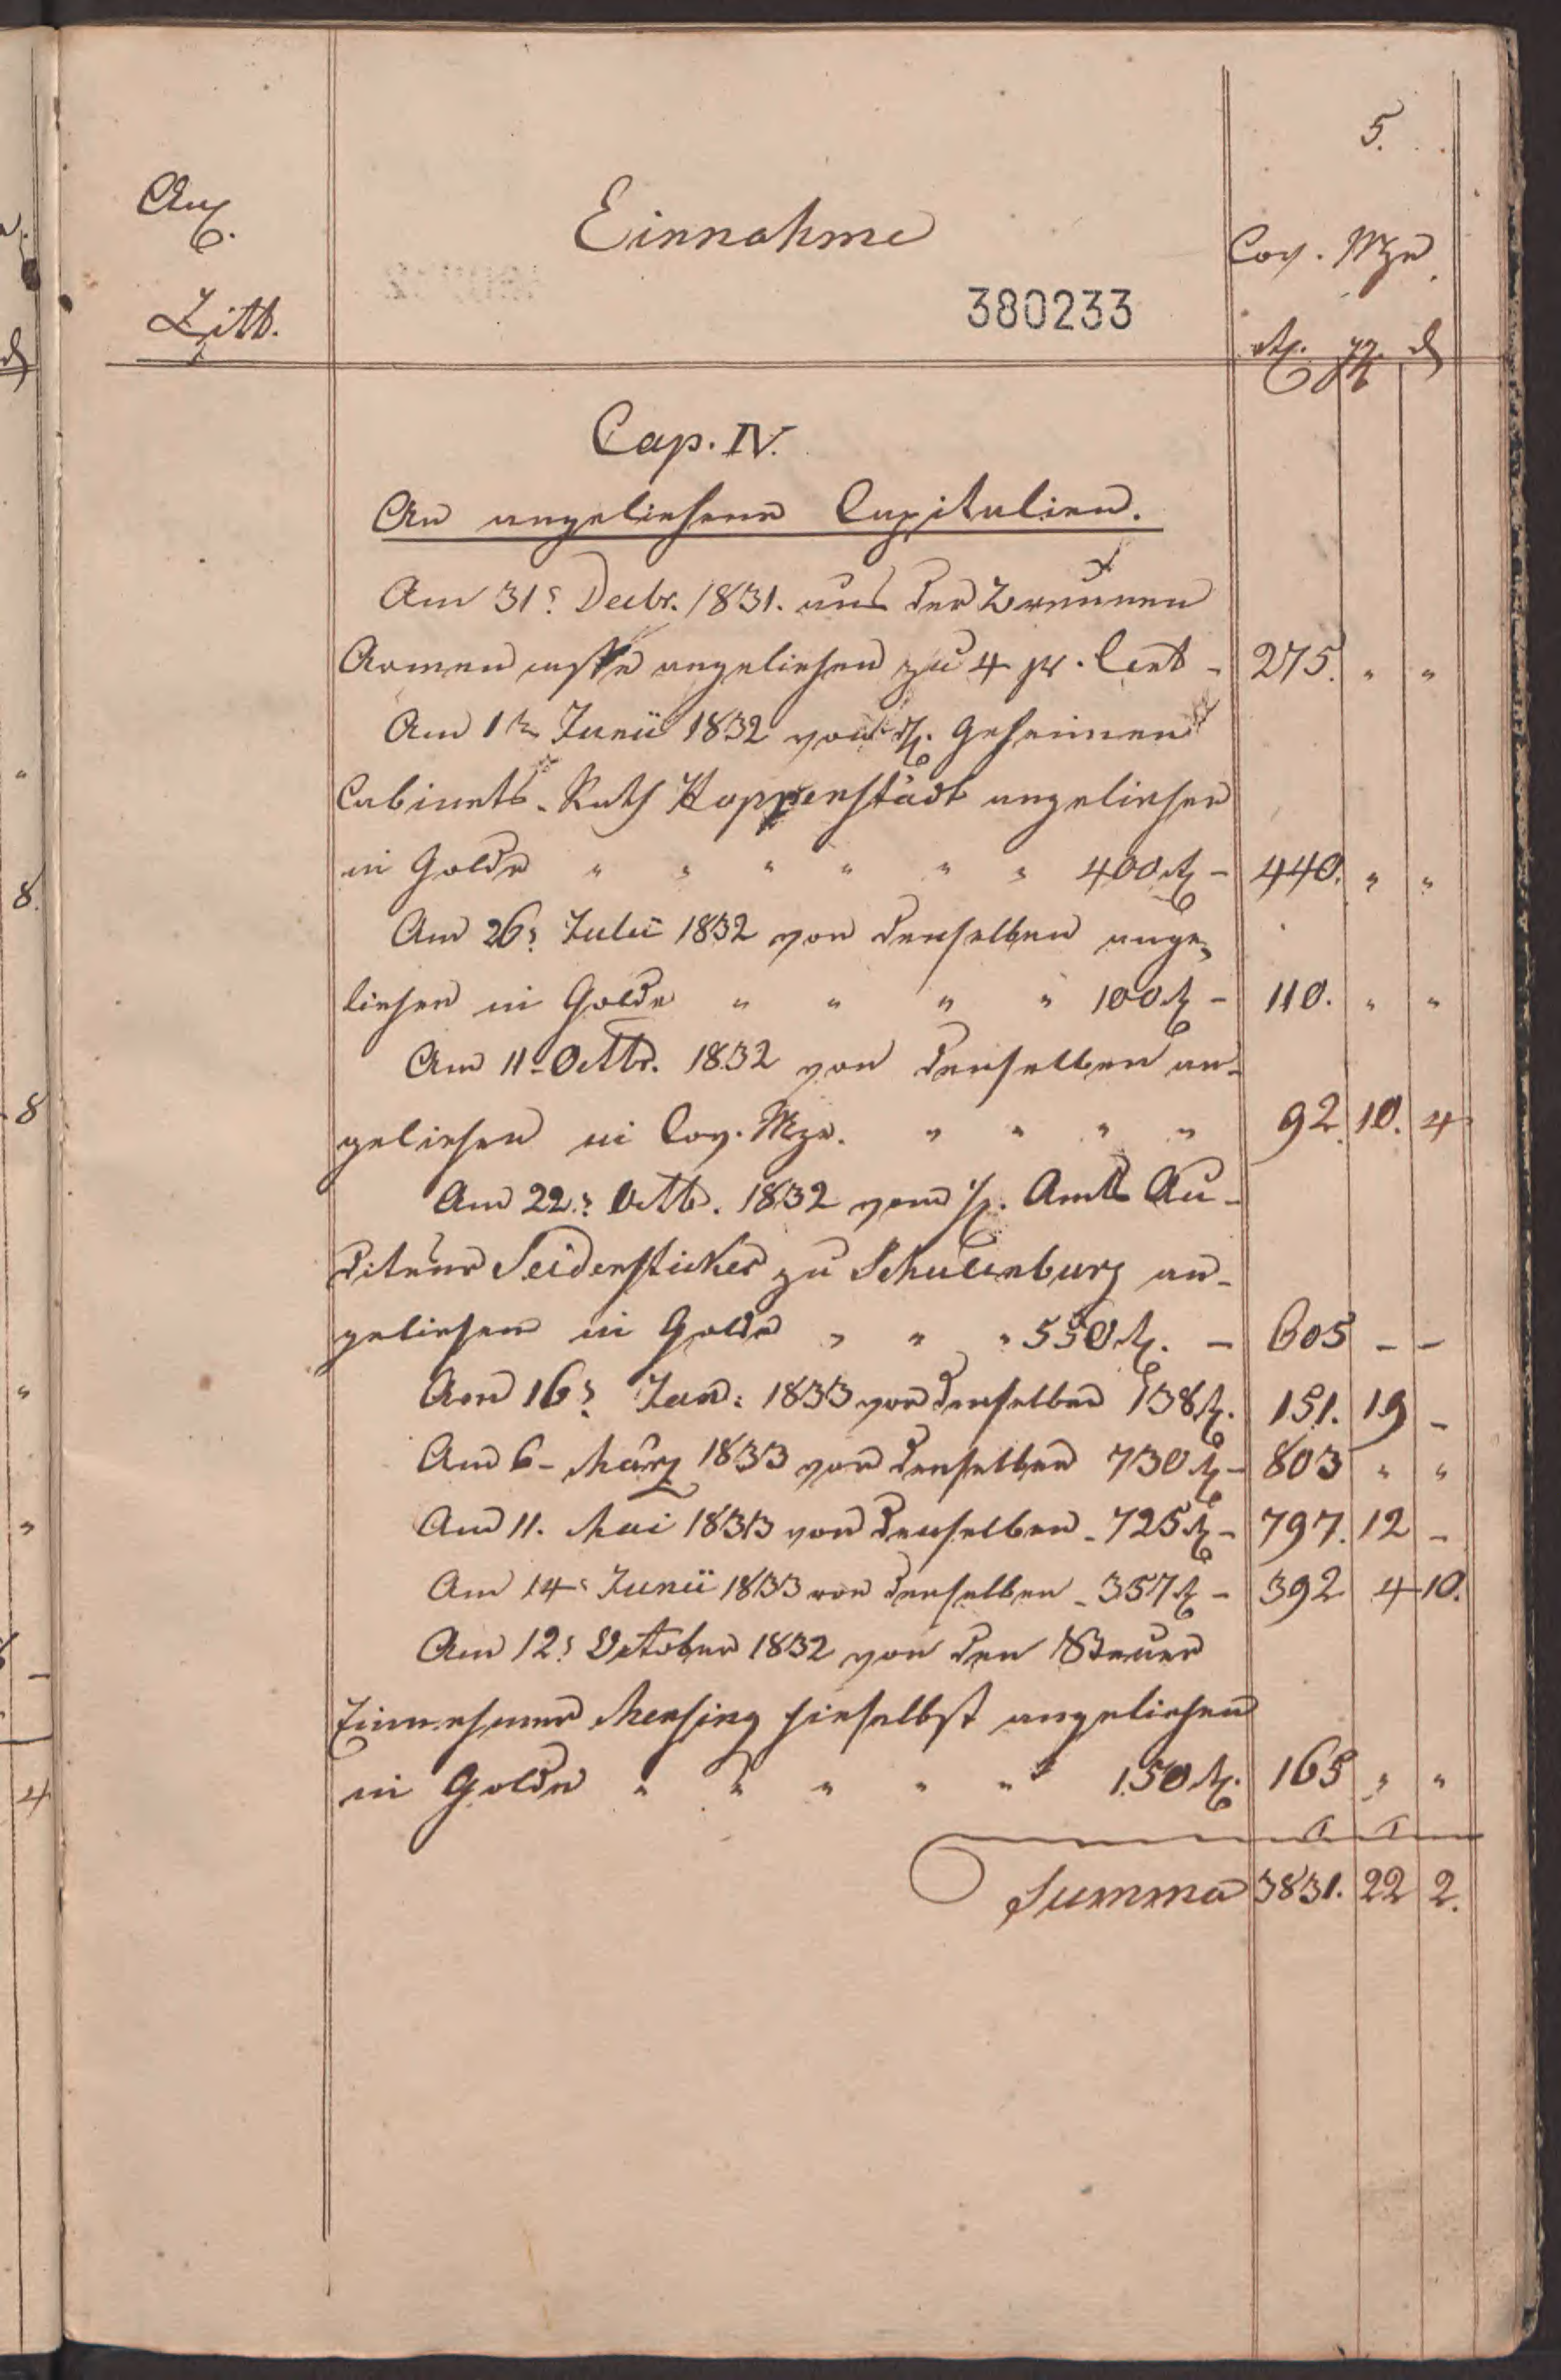 5.
Anl.
Einnahme
Cov. Mze
380233
Litt.
rtl. ggr. d
Cap. IV.
An angeliehene Capitalien.
Am 31t Decbr. 1831. aus der Brunnen
Armen casse angeliehen zu 4 pr. Cent - 275. " "
Am 1ten Junii 1832 von H. Geheimen
Cabinets-Rath Hoppenstädt angeliehen
in Golde " " " " " " 400 rtl - 440. " "
Am 26t Julii 1832 von denselben ange-
liehen in Golde " " " " 100 rtl - 110. " "
Am 11t Octbr. 1832 von denselben an-
geliehen in Cov. Mze. " " " " 92. 10. 4
Am 22t Octb. 1832 vom H. Amts Au-
diteur Seidensticker zu Schulenburg an-
geliehen in Golde " " " 550 rtl. - 605 - -
Am 16t Jan: 1833 von denselben 138 rtl. 151. 19 -
Am 6- März 1833 von denselben 730 rtl - 803 " "
Am 11. Mai 1833 von denselben - 725 rtl - 797. 12 -
Am 14t Junii 1833 von denselben - 357 rtl - 392 4 10.
Am 12t October 1832 von den Steuer
Einnehmer Mensing hieselbst angeliehen
in Golde " " " " " 150 rtl. 165 " "
Summa 3831. 22 2.